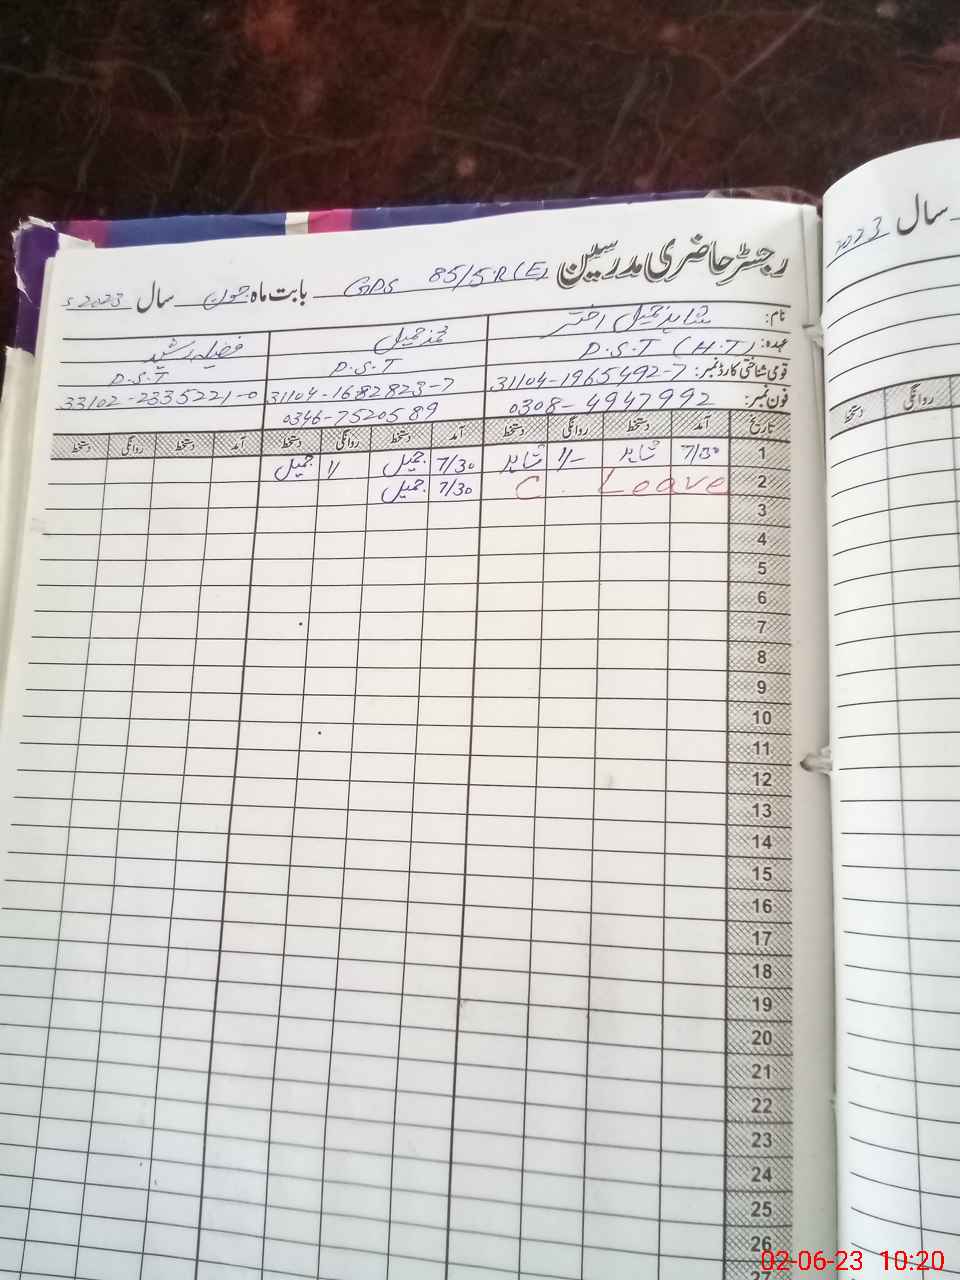 رجسٹر حاضری مدرسین 85/5.R(E) GPS بابت ماہ جون سال 2023ء
نام: شاہد جمیل اختر محمد جمیل فضیلہ رشید
عہدہ: P.S.T (H.T) P.S.T P.S.T
قومی شناختی کارڈ نمبر: 31104-1965492-7 31104-1682823-7 33102-2335221-0
فون نمبر: 0308-4947992 0346-7520589
تاریخ آمد دستخط روانگی دستخط آمد دستخط روانگی دستخط آمد دستخط روانگی دستخط
1 7/30 شاہد 1/- شاہد 7/30 جمیل 1/ جمیل
2 Leave C. 7/30 جمیل
3
4
5
6
7
8
9
10
11
12
13
14
15
16
17
18
19
20
21
22
23
24
25
26
27
سال 2023
روانگی دستخط
02-06-23 10:20